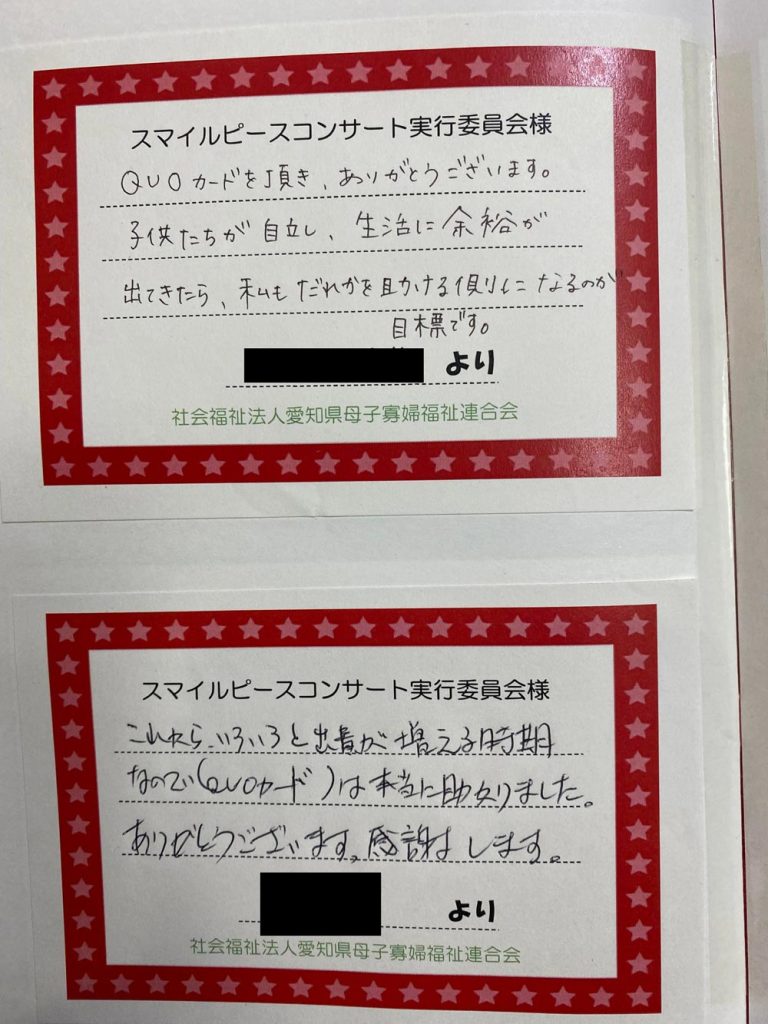 スマイルピースコンサート実行委員会様
QUOカードを頂き、ありがとうございます。
子供たちが自立し、生活に余裕が
出てきたら、私もだれかを助ける側になるのが
目標です。
より
社会福祉法人愛知県母子寡婦福祉連合会
スマイルピースコンサート実行委員会様
これから、いろいろと出費が増える時期
なので(QUOカード)は本当に助かりました。
ありがとうございます。感謝します。
より
社会福祉法人愛知県母子寡婦福祉連合会